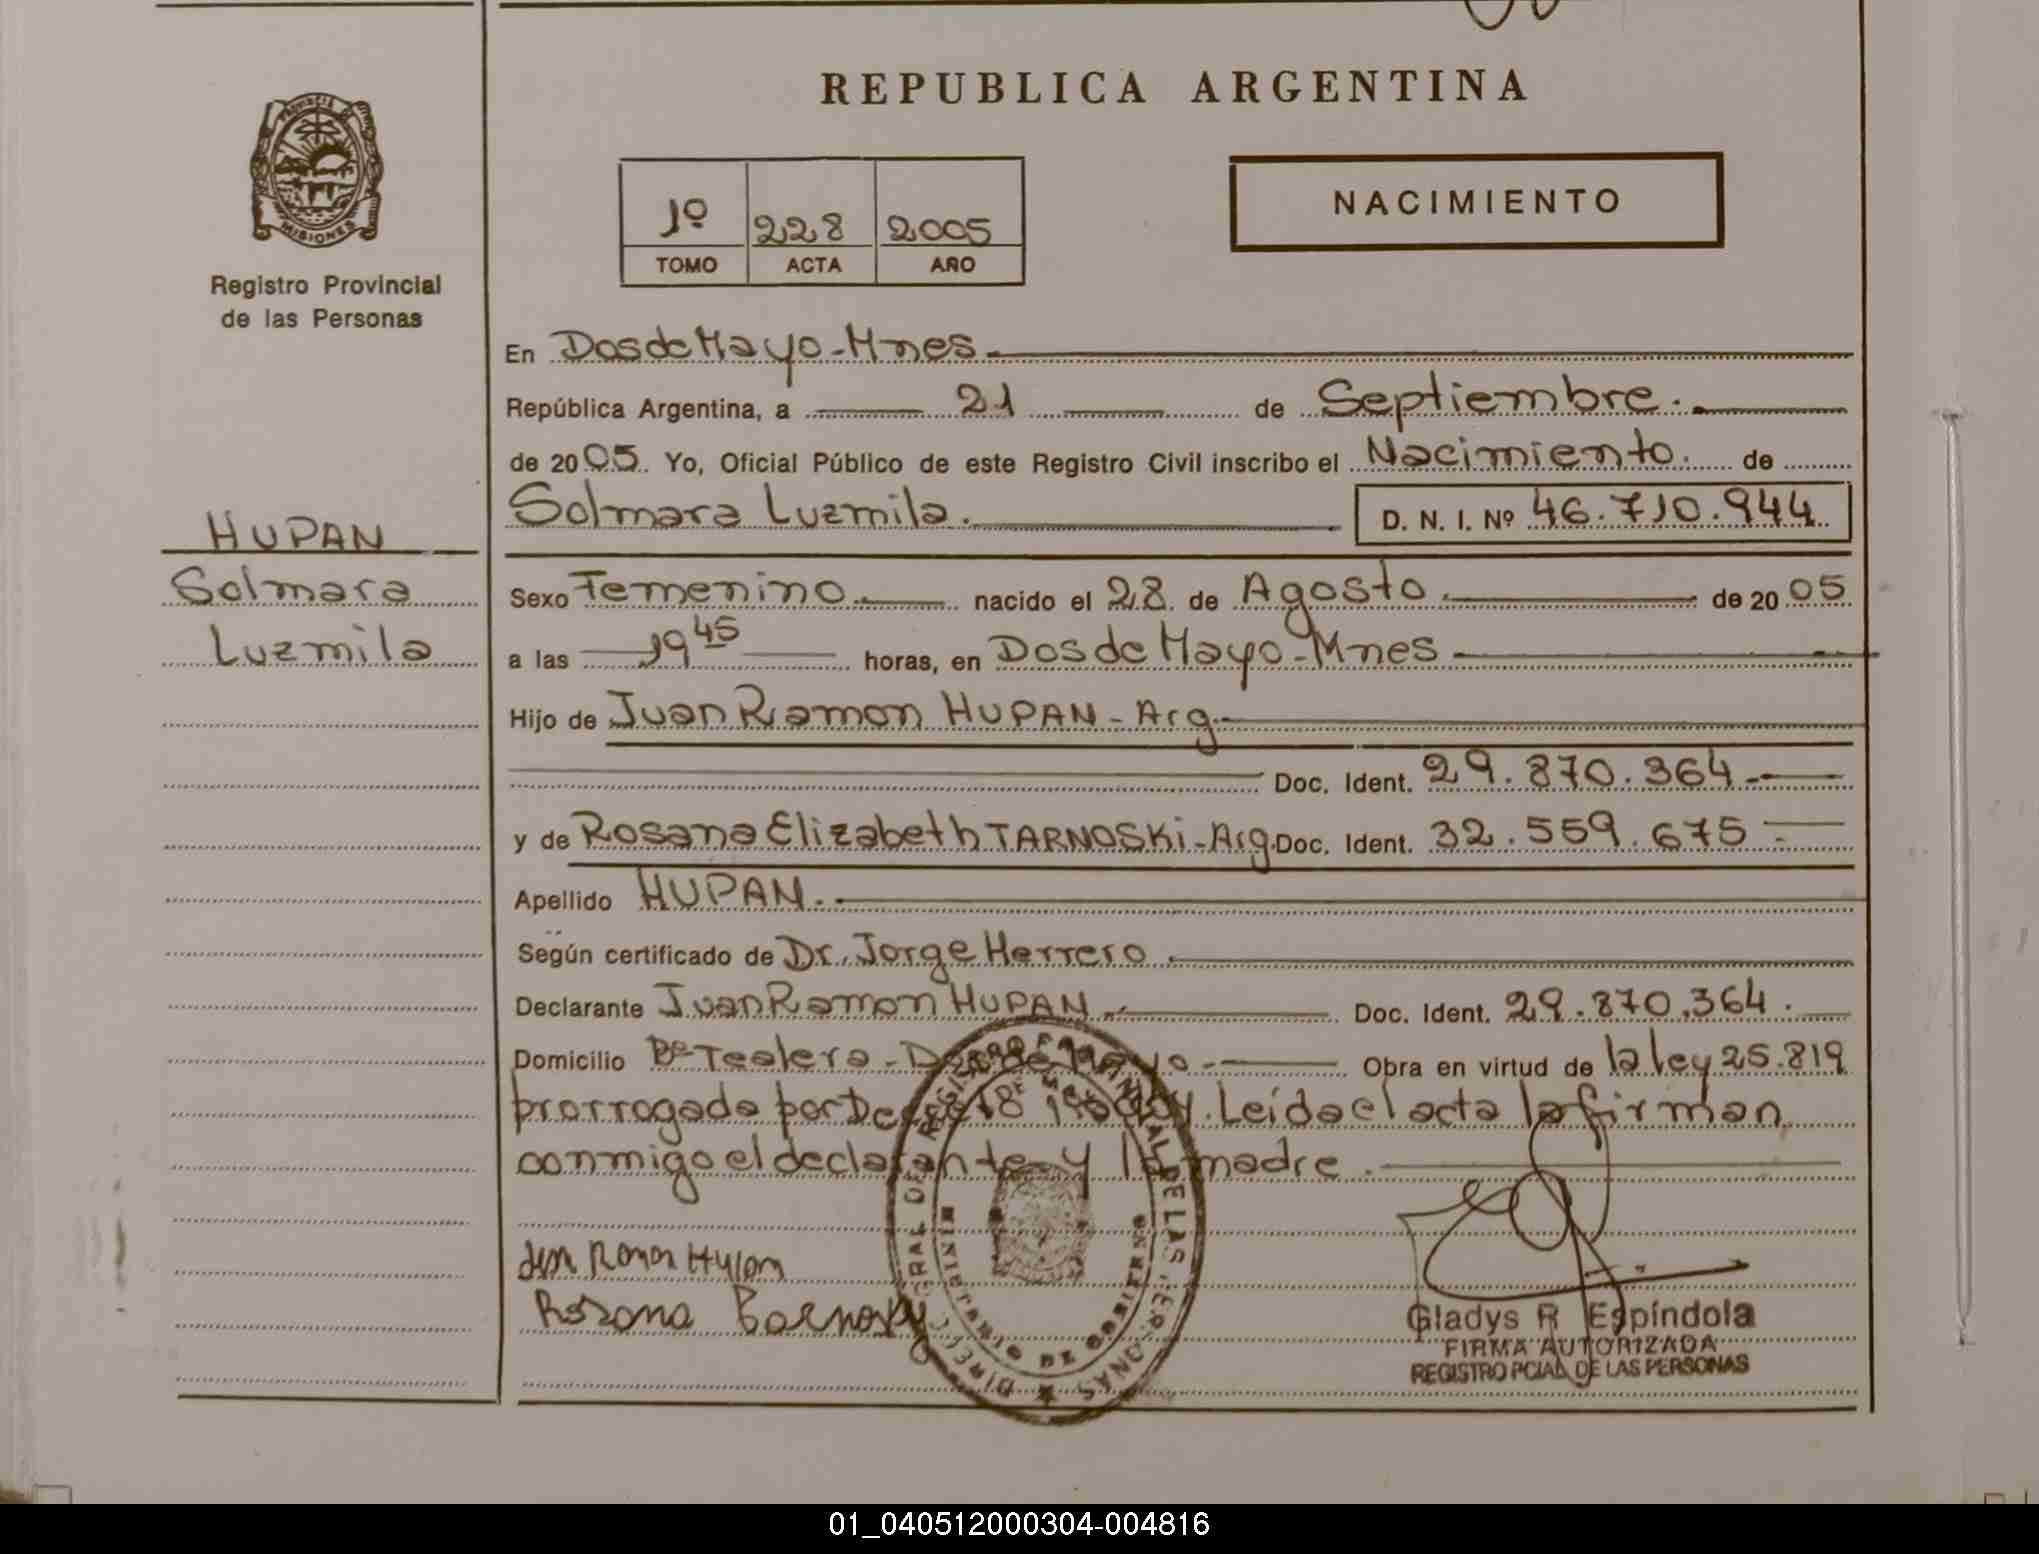 REPUBLICA ARGENTINA
PROVINCIA DE MISIONES
Registro Provincial
de las Personas
1º 228 2005
TOMO ACTA AÑO
NACIMIENTO
HUPAN
Solmara
Luzmila
En Dos de Mayo - Mnes
República Argentina, a 21 de Septiembre
de 2005. Yo, Oficial Público de este Registro Civil inscribo el Nacimiento. de
Solmara Luzmila. D. N. I. Nº 46.710.944
Sexo Femenino nacido el 28 de Agosto de 2005
a las 19 45 horas, en Dos de Mayo - Mnes
Hijo de Juan Ramon HUPAN - Arg.
Doc. Ident. 29.870.364
y de Rosana Elizabeth TARNOSKi - Arg. Doc. Ident. 32.559.675
Apellido HUPAN.
Según certificado de Dr. Jorge Herrero
Declarante Juan Ramon HUPAN Doc. Ident. 29.870.364.
Domicilio Bº Tealera - Dos de Mayo Obra en virtud de la ley 25.819
prorrogada por Leída el acta la firman
conmigo el declarante y la madre.
Ramon Hupan
Rosana
DIREC. GRAL DEL REGISTRO PROVINCIAL DE LAS PERSONAS
MINISTERIO DE GOBIERNO
Gladys R Espíndola
FIRMA AUTORIZADA
REGISTRO PCIAL DE LAS PERSONAS
01_040512000304-004816